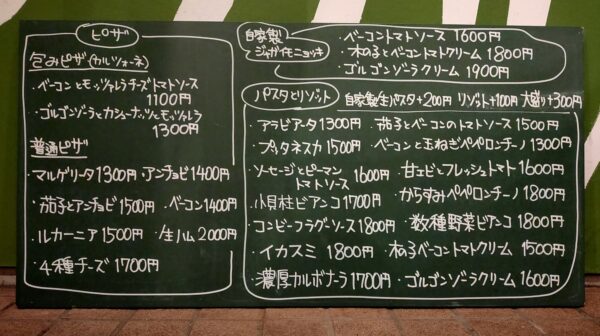 ピザ
包みピザ(カルツォーネ)
・ベーコンとモッツァレラチーズトマトソース
1100円
・ゴルゴンゾーラとカシューナッツとモッツァレラ
1300円
普通ピザ
・マルゲリータ1300円 ・アンチョビ1400円
・茄子とアンチョビ1500円 ・ベーコン1400円
・ルカーニア1500円 ・生ハム2000円
・4種チーズ1700円
自家製
ジャガイモニョッキ
・ベーコントマトソース1600円
・木のことベーコントマトクリーム1800円
・ゴルゴンゾーラクリーム1900円
パスタとリゾット
自家製生パスタ+200円 リゾット+100円 大盛り+300円
・アラビアータ1300円 ・茄子とベーコンのトマトソース1500円
・プッタネスカ1500円 ・ベーコンと玉ねぎペペロンチーノ1300円
・ソーセージとピーマン
トマトソース1600円 ・甘エビとフレッシュトマト1600円
・小貝柱ビアンコ1700円 ・からすみペペロンチーノ1800円
・コンビーフラグーソース1800円 ・数種野菜ビアンコ1800円
・イカスミ1800円 ・木のこベーコントマトクリーム1500円
・濃厚カルボナーラ1700円 ・ゴルゴンゾーラクリーム1600円